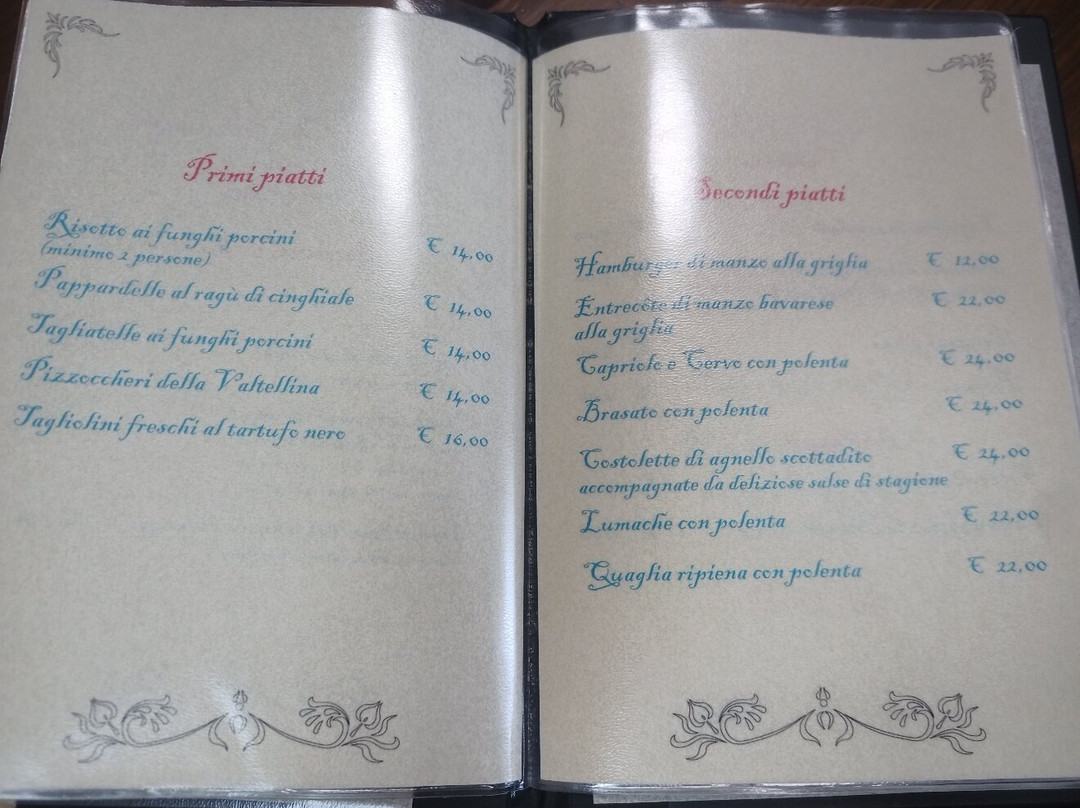 Primi piatti
Risotto ai funghi porcini € 14,00
(minimo 2 persone)
Pappardelle al ragù di cinghiale € 14,00
Tagliatelle ai funghi porcini € 14,00
Pizzoccheri della Valtellina € 14,00
Tagliolini freschi al tartufo nero € 16,00
Secondi piatti
Hamburger di manzo alla griglia € 12,00
Entrecôte di manzo bavarese € 22,00
alla griglia
Capriolo e Cervo con polenta € 24,00
Brasato con polenta € 24,00
Costolette di agnello scottadito € 24,00
accompagnate da deliziose salse di stagione
Lumache con polenta € 22,00
Quaglia ripiena con polenta € 22,00